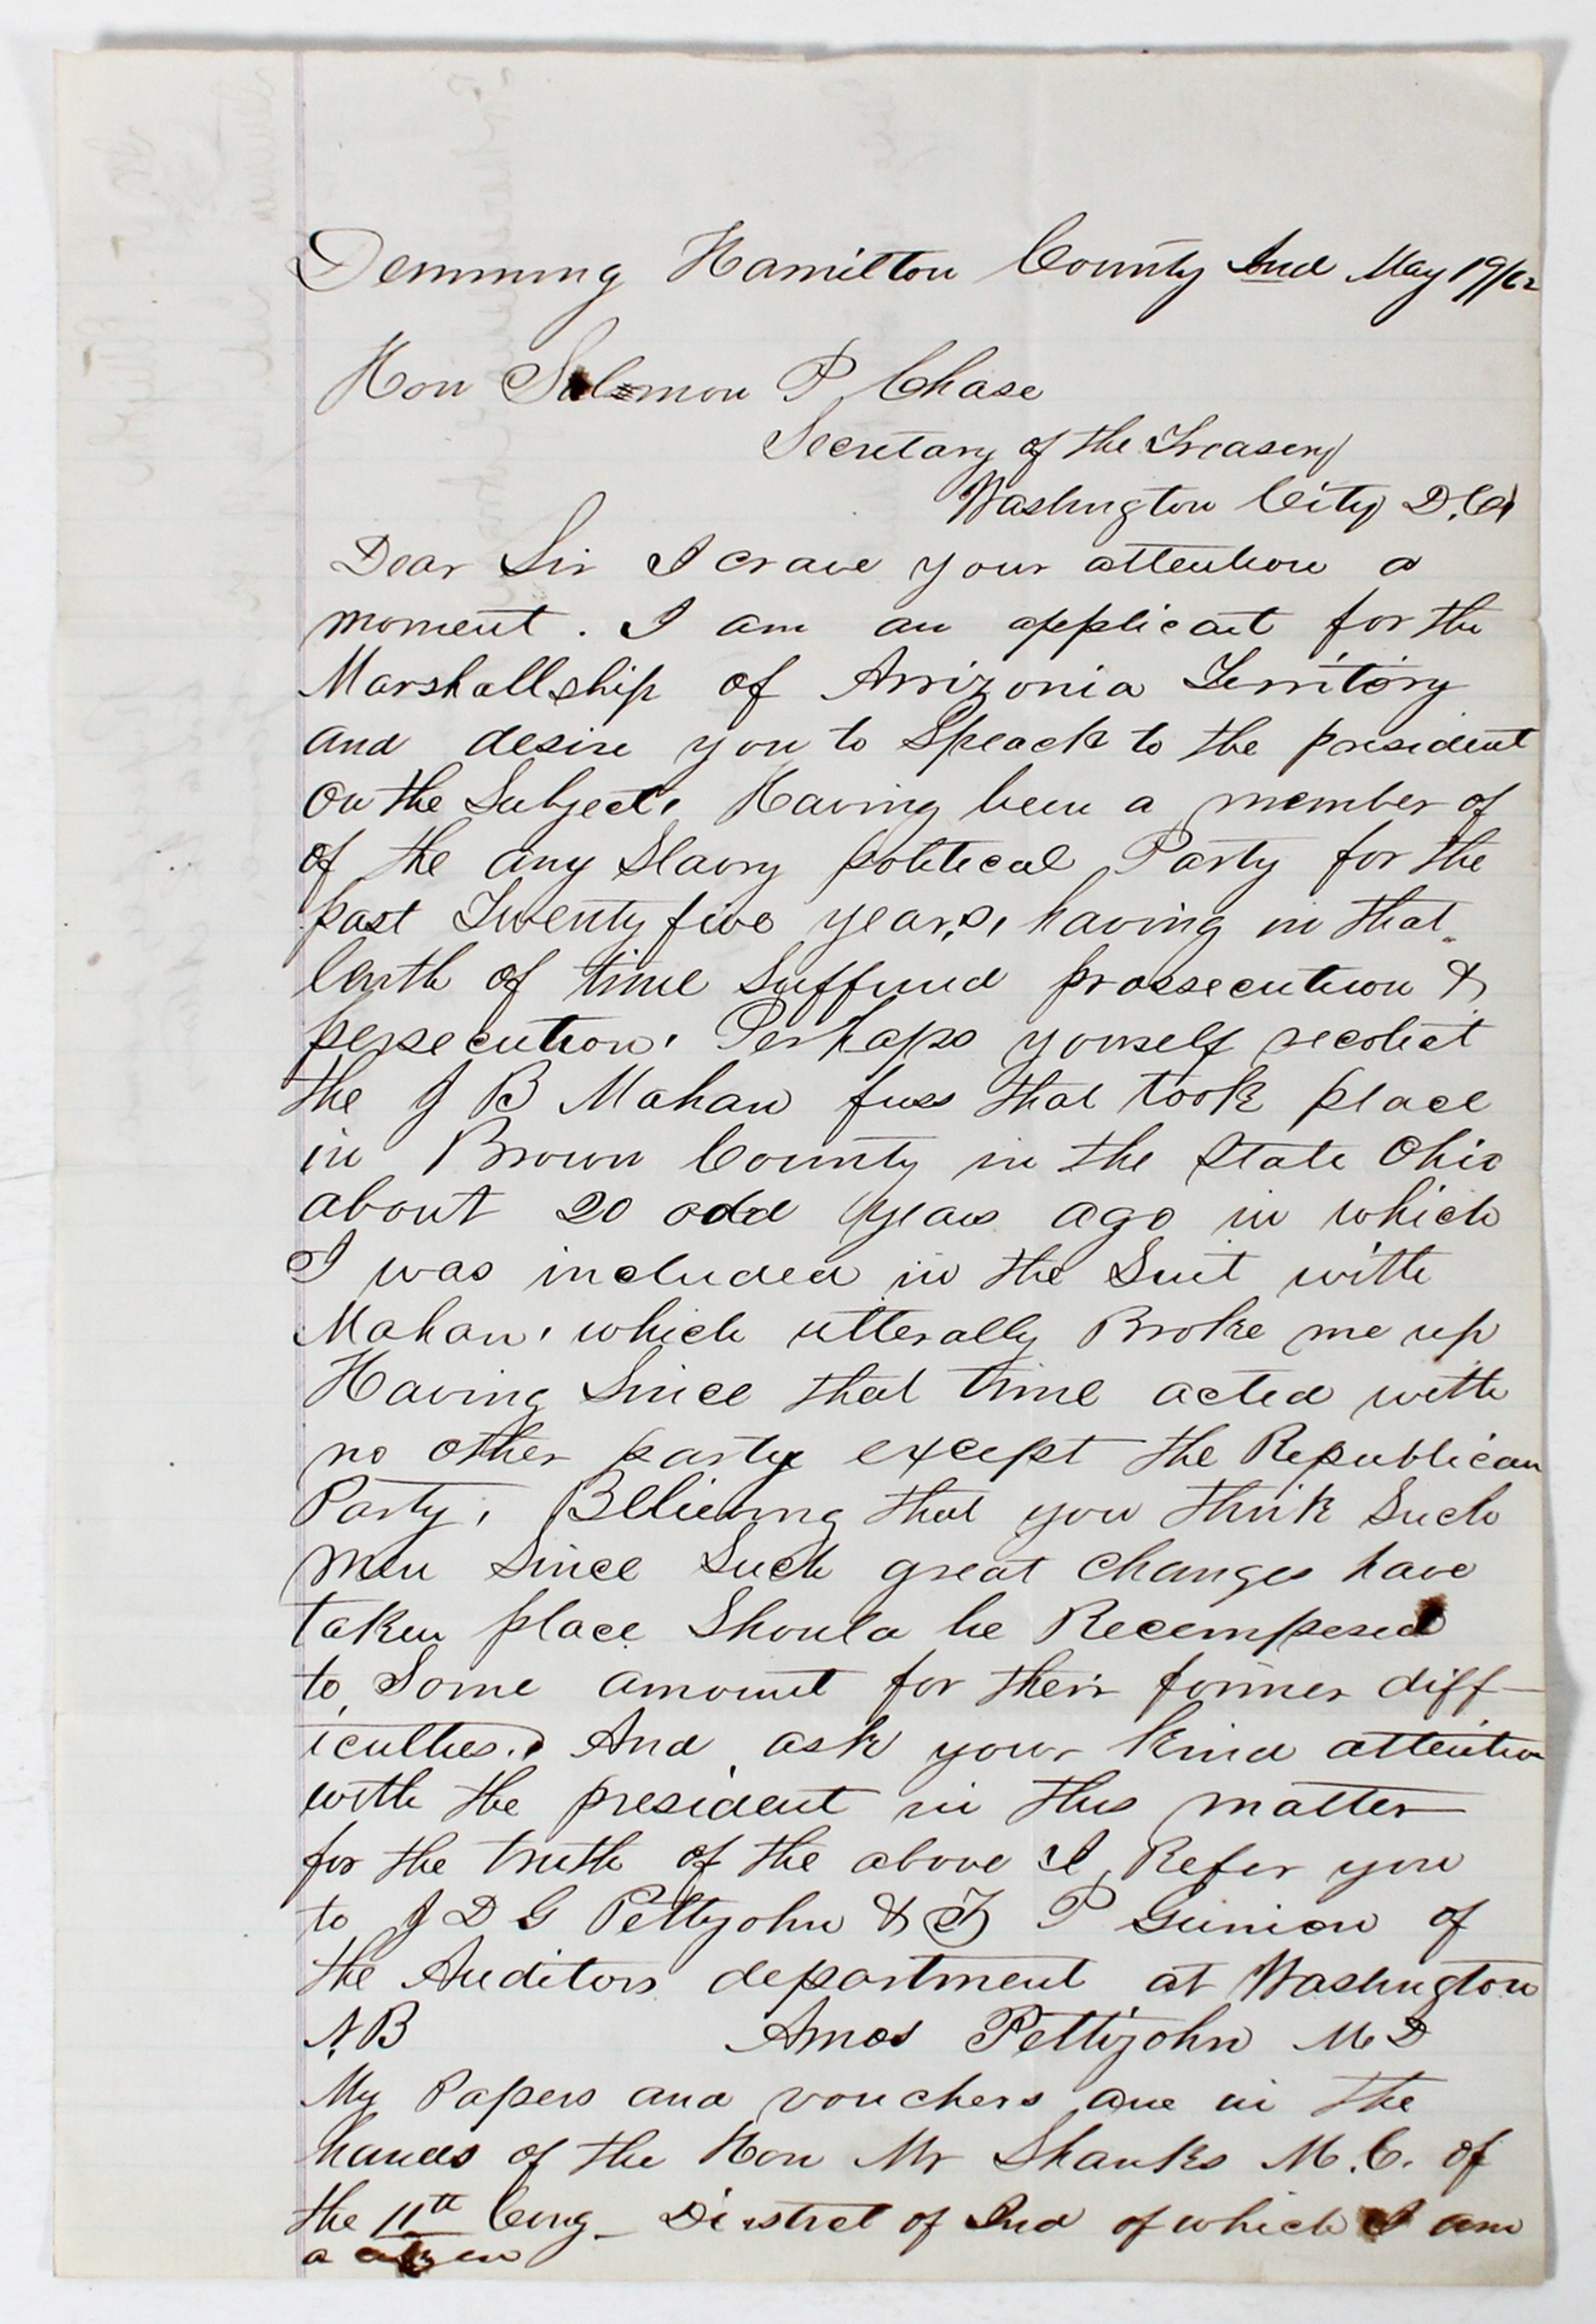 Demming Hamilton County Ind May 19/62
Hon Salmon P Chase
Secretary of the Treasery
Washington City D.C.
Dear Sir I crave your attention a
moment. I am an applicant for the
Marshallship of Arrizonia Territory
and desire you to Speack to the president
on the Subject. Having been a member of
of the any Slavry political Party for the
past Twenty five years, having in that
lenth of time Suffured prossecution &
persecution. Perhaps yourself recolect
the J B Mahan fuss that took place
in Brown County in the State Ohio
about 20 odd years ago in which
I was included in the Suit with
Mahan, which utterally Broke me up
Having Since that time acted with
no other party except the Republican
Party, Believing that you think Such
men Since Such great changes have
taken place Should be Recempesed
to Some amount for their former diff-
iculties. And ask your kind attention
with the president in this matter
for the truth of the above I Refer you
to J D G Pettyjohn & J P Guinion of
the Auditors department at Washington
N.B Amos Pettijohn M D
My Papers and vouchers are in the
hands of the Hon Mr Shanks M.C. of
the 11th Cong- District of Ind of which I am
a